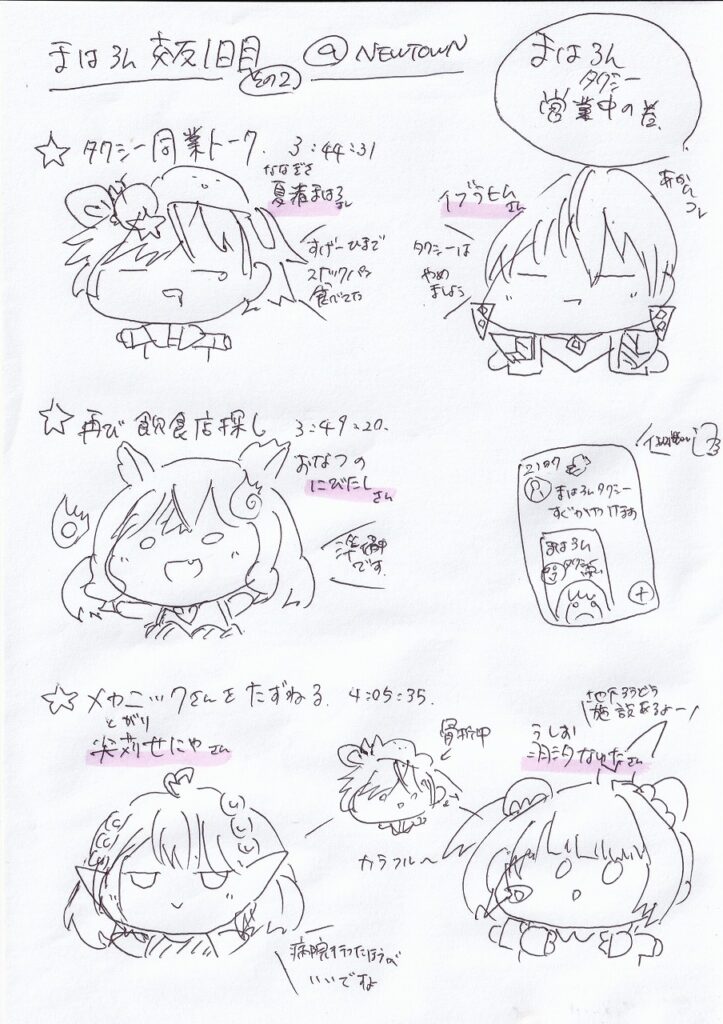 まはろん 夜1日目 @ NEWTOWN
その2
まはろん
タクシー
営業中の巻
☆ タクシー同業トーク. 3:44:31
ななぎさ
夏渚まはろさん
イブラヒムさん
あかんコレ
すげーひまで
スナックパン
食べてた
タクシーは
やめ
ましょう
☆ 再び飲食店探し 3:49:20.
おなつの
にびたしさん
準備中
です.
まはろんタクシー
すぐかやけます
まはろん
タクシー
☆ メカニックさんをたずねる. 4:05:35.
とがり
尖苅せにやさん
骨折中
カラフル〜
地下ろうどう
施設あるよー
うしお
病院行ったほうが
いいですよ